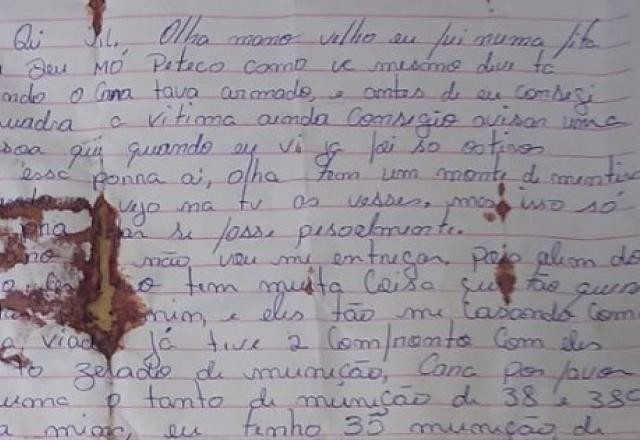 Oi Jil. Olha mano velho eu fui numa fita
Deu MÓ Peteco como vc mesmo deve tá
ndo o Cana tava armado, e antes de eu consegi
uadra a vitima ainda Consegio avisar uma
soa qui quando eu vi já foi so
essa porra ai, olha tem um monte de mentira
vejo na tv as vesses, mas isso só
se fosse pesoalmente.
não vou me entregar, pois alem do
o tem muita Coisa que tão quere
mim, e eles tão me Casando Com
a viad já tive 2 Comfronto Com eles
to zerado de munição, Cana por favor
uma o tanto de munição de 38 e 380
a mim, eu tenho 35 munição de